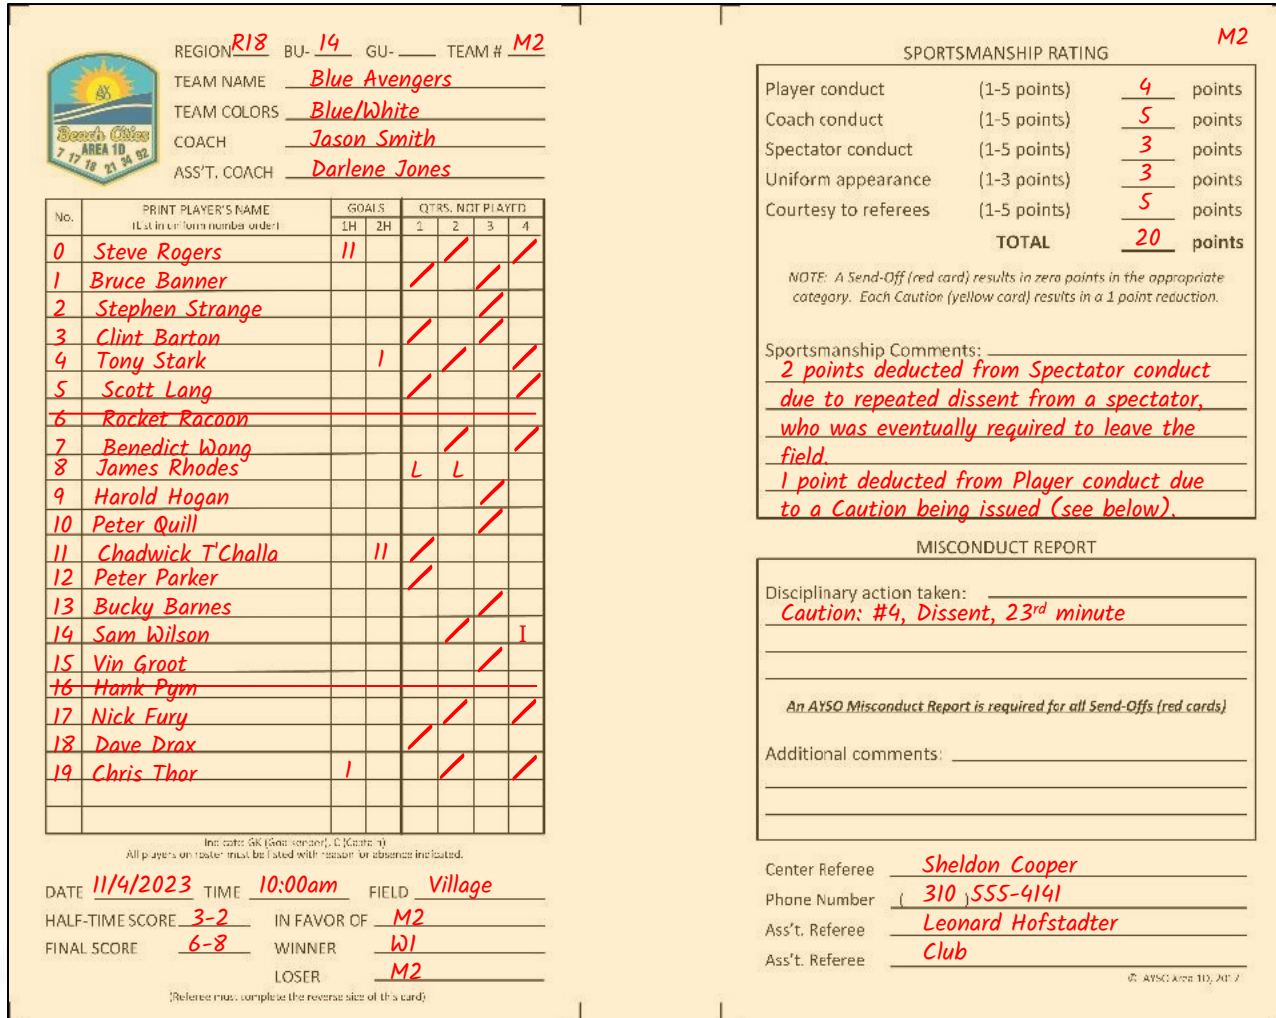 REGION R18 BU- 14 GU- ____ TEAM # M2
TEAM NAME Blue Avengers
TEAM COLORS Blue/White
COACH Jason Smith
ASS'T. COACH Darlene Jones
AYSO
Beach Cities
AREA 1D
7 17 18 21 34 92
No. PRINT PLAYER'S NAME GOALS QTRS. NOT PLAYED
(List in uniform number order) 1H 2H 1 2 3 4
0 Steve Rogers II / /
1 Bruce Banner / /
2 Stephen Strange /
3 Clint Barton / /
4 Tony Stark I / /
5 Scott Lang / /
6 Rocket Racoon
7 Benedict Wong / /
8 James Rhodes L L
9 Harold Hogan /
10 Peter Quill /
11 Chadwick T'Challa II /
12 Peter Parker /
13 Bucky Barnes /
14 Sam Wilson / I
15 Vin Groot /
16 Hank Pym
17 Nick Fury / /
18 Dave Drax /
19 Chris Thor I / /
Indicate GK (Goalkeeper), C (Captain)
All players on roster must be listed with reason for absence indicated.
DATE 11/4/2023 TIME 10:00am FIELD Village
HALF-TIME SCORE 3-2 IN FAVOR OF M2
FINAL SCORE 6-8 WINNER W1
LOSER M2
(Referee must complete the reverse side of this card)
M2
SPORTSMANSHIP RATING
Player conduct (1-5 points) 4 points
Coach conduct (1-5 points) 5 points
Spectator conduct (1-5 points) 3 points
Uniform appearance (1-3 points) 3 points
Courtesy to referees (1-5 points) 5 points
TOTAL 20 points
NOTE: A Send-Off (red card) results in zero points in the appropriate
category. Each Caution (yellow card) results in a 1 point reduction.
Sportsmanship Comments:
2 points deducted from Spectator conduct
due to repeated dissent from a spectator,
who was eventually required to leave the
field.
1 point deducted from Player conduct due
to a Caution being issued (see below).
MISCONDUCT REPORT
Disciplinary action taken:
Caution: #4, Dissent, 23rd minute
An AYSO Misconduct Report is required for all Send-Offs (red cards)
Additional comments:
Center Referee Sheldon Cooper
Phone Number (310) 555-4141
Ass't. Referee Leonard Hofstadter
Ass't. Referee Club
© AYSO Area 1D, 2017